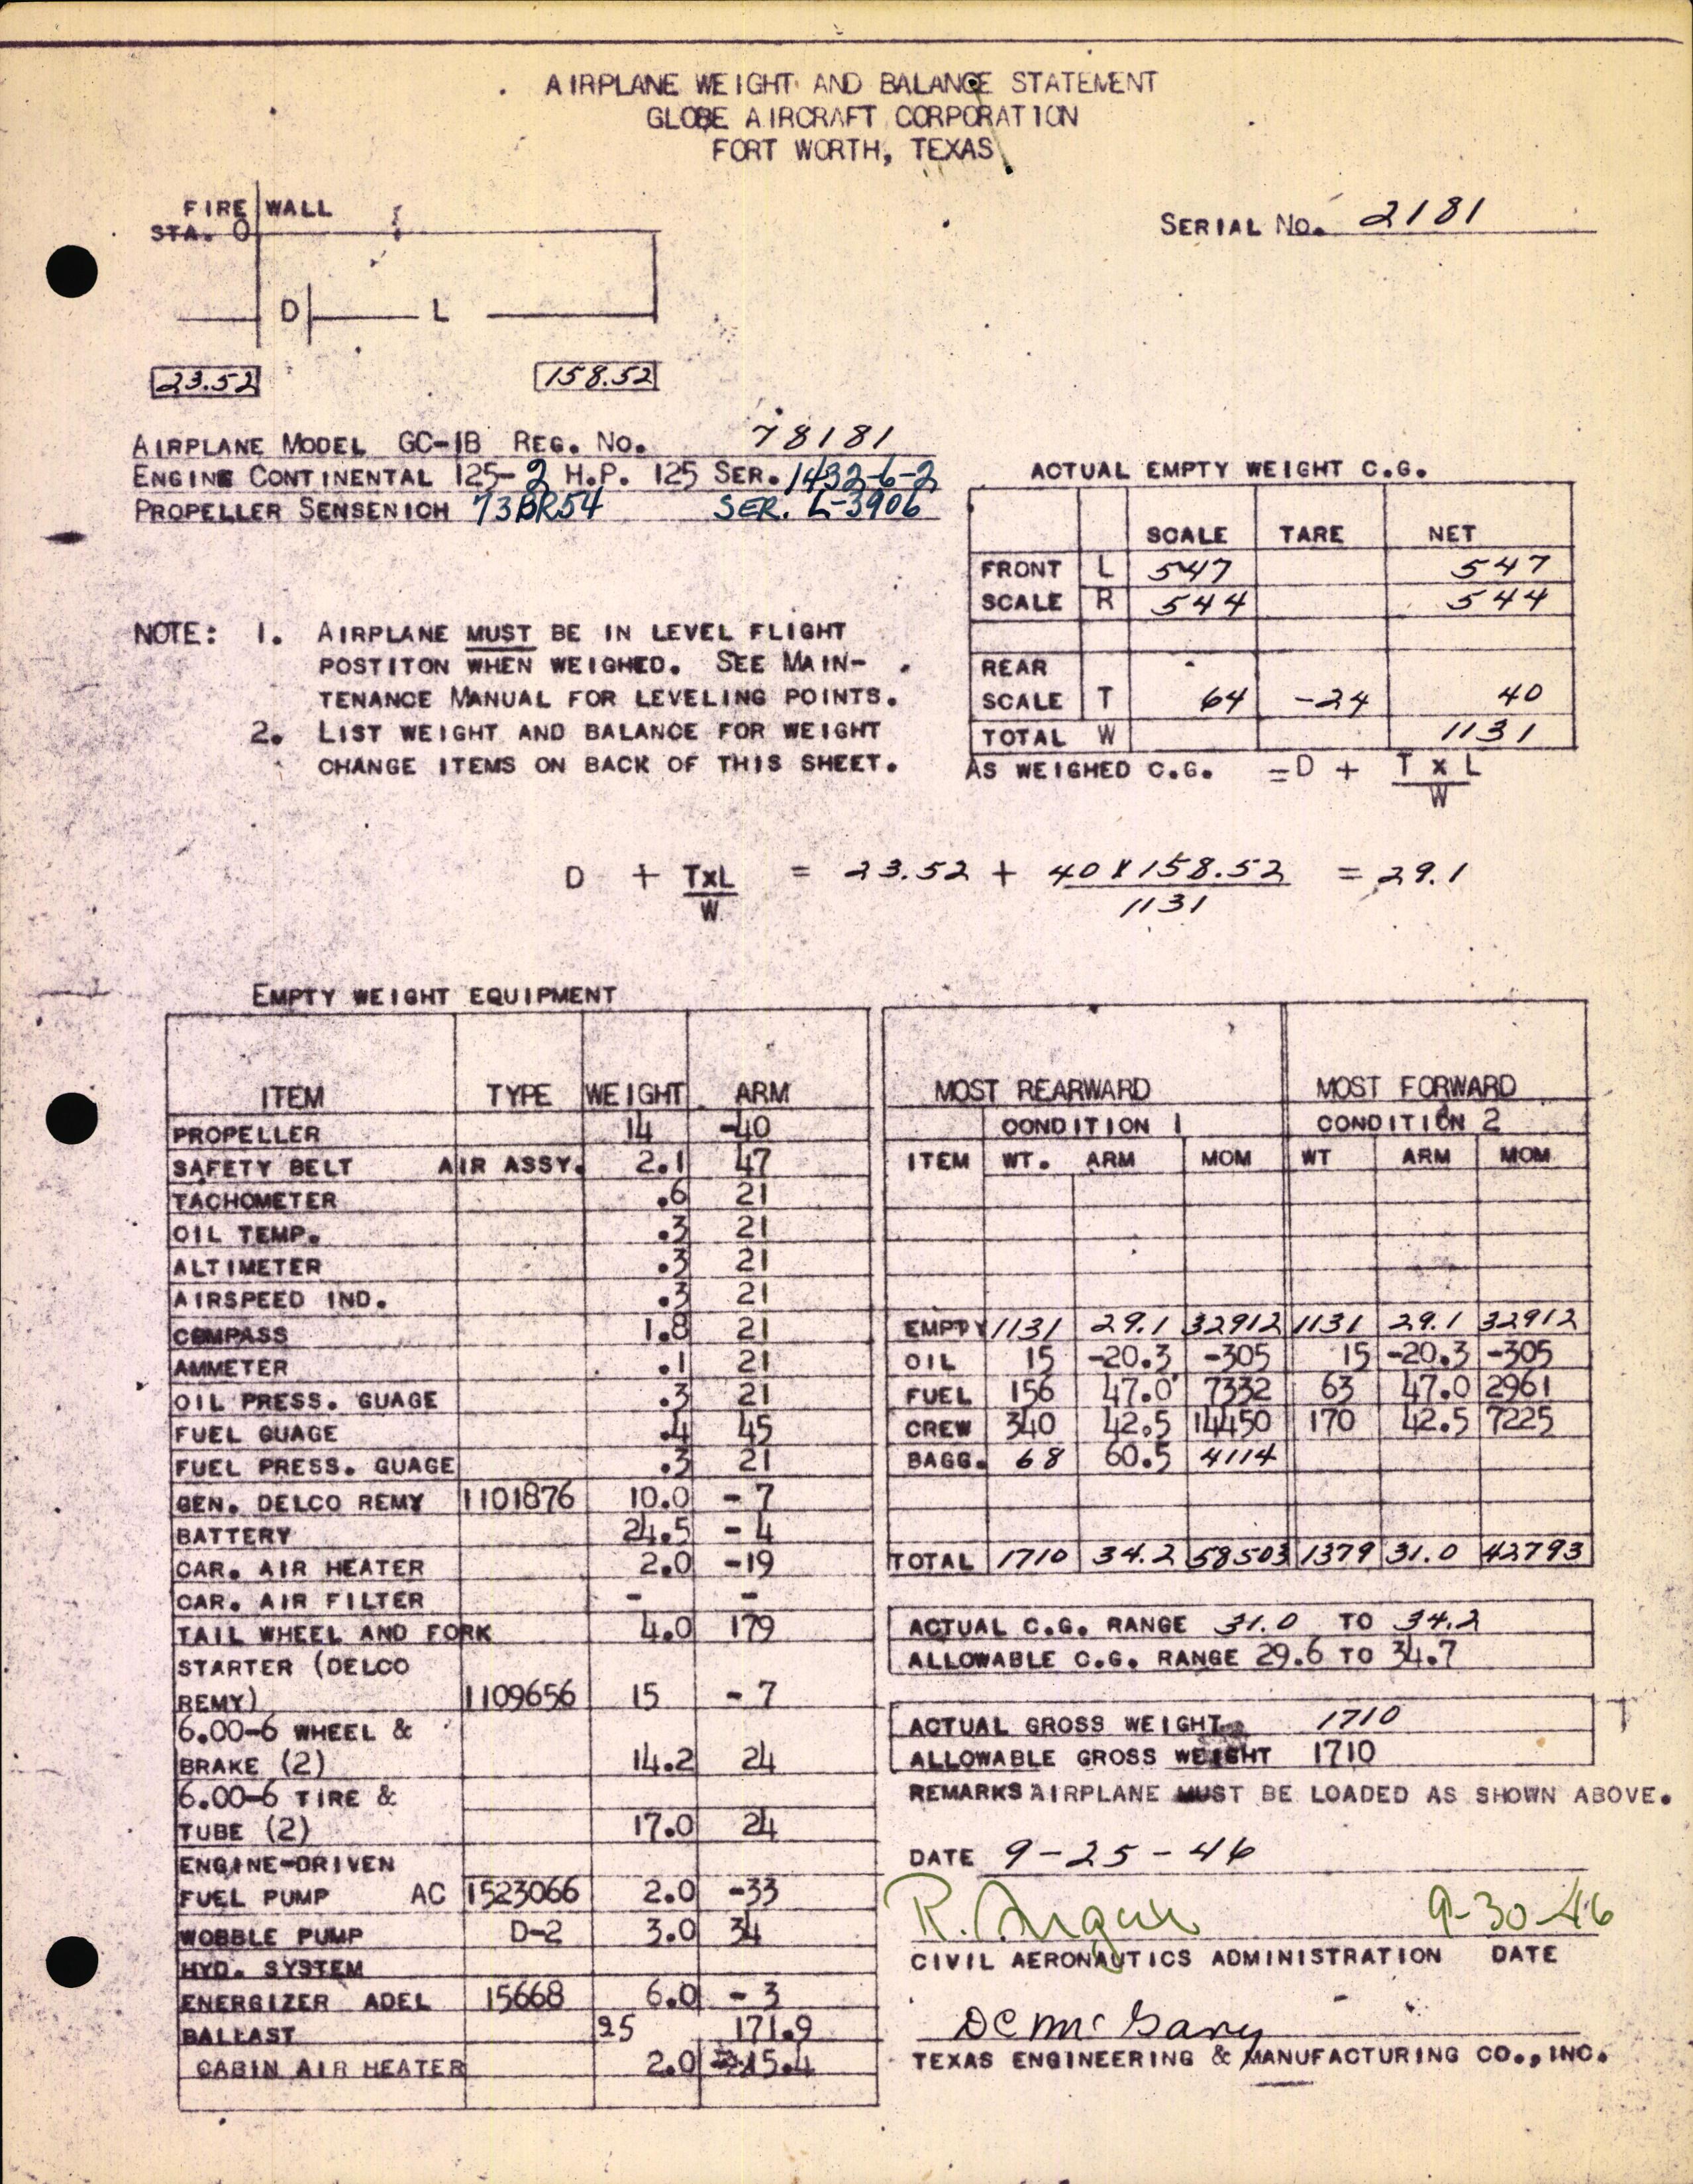 AIRPLANE WEIGHT AND BALANCE STATEMENT
GLOBE AIRCRAFT CORPORATION
FORT WORTH, TEXAS
FIRE WALL
STA. 0
SERIAL NO. 2181
D L
23.52 158.52
AIRPLANE MODEL GC-1B REG. NO. 78181
ENGINE CONTINENTAL 125-2 H.P. 125 SER. 1432-6-2
PROPELLER SENSENICH 73BR54 SER. L-3906
NOTE: 1. AIRPLANE MUST BE IN LEVEL FLIGHT
POSTITON WHEN WEIGHED. SEE MAIN-
TENANCE MANUAL FOR LEVELING POINTS.
2. LIST WEIGHT AND BALANCE FOR WEIGHT
CHANGE ITEMS ON BACK OF THIS SHEET.
ACTUAL EMPTY WEIGHT C.G.
SCALE TARE NET
FRONT L 547 547
SCALE R 544 544
REAR
SCALE T 64 -24 40
TOTAL W 1131
AS WEIGHED C.G. = D + T x L
W
D + TxL = 23.52 + 40 X 158.52 = 29.1
W 1131
EMPTY WEIGHT EQUIPMENT
ITEM TYPE WEIGHT ARM
PROPELLER 14 -40
SAFETY BELT AIR ASSY. 2.1 47
TACHOMETER .6 21
OIL TEMP. .3 21
ALTIMETER .3 21
AIRSPEED IND. .3 21
COMPASS 1.8 21
AMMETER .1 21
OIL PRESS. GUAGE .3 21
FUEL GUAGE .4 45
FUEL PRESS. GUAGE .3 21
GEN. DELCO REMY 1101876 10.0 - 7
BATTERY 24.5 - 4
CAR. AIR HEATER 2.0 -19
CAR. AIR FILTER - -
TAIL WHEEL AND FORK 4.0 179
STARTER (DELCO
REMY) 1109656 15 - 7
6.00-6 WHEEL &
BRAKE (2) 14.2 24
6.00-6 TIRE &
TUBE (2) 17.0 24
ENGINE-DRIVEN
FUEL PUMP AC 1523066 2.0 -33
WOBBLE PUMP D-2 3.0 34
HYD. SYSTEM
ENERGIZER ADEL 15668 6.0 - 3
BALLAST 25 171.9
CABIN AIR HEATER 2.0 15.4
MOST REARWARD MOST FORWARD
CONDITION 1 CONDITION 2
ITEM WT. ARM MOM WT ARM MOM
EMPTY 1131 29.1 32912 1131 29.1 32912
OIL 15 -20.3 -305 15 -20.3 -305
FUEL 156 47.0 7332 63 47.0 2961
CREW 340 42.5 14450 170 42.5 7225
BAGG. 68 60.5 4114
TOTAL 1710 34.2 58503 1379 31.0 42793
ACTUAL C.G. RANGE 31.0 TO 34.2
ALLOWABLE C.G. RANGE 29.6 TO 34.7
ACTUAL GROSS WEIGHT 1710
ALLOWABLE GROSS WEIGHT 1710
REMARKS AIRPLANE MUST BE LOADED AS SHOWN ABOVE.
DATE 9-25-46
R. 9-30-46
CIVIL AERONAUTICS ADMINISTRATION DATE
DC McGary
TEXAS ENGINEERING & MANUFACTURING CO., INC.